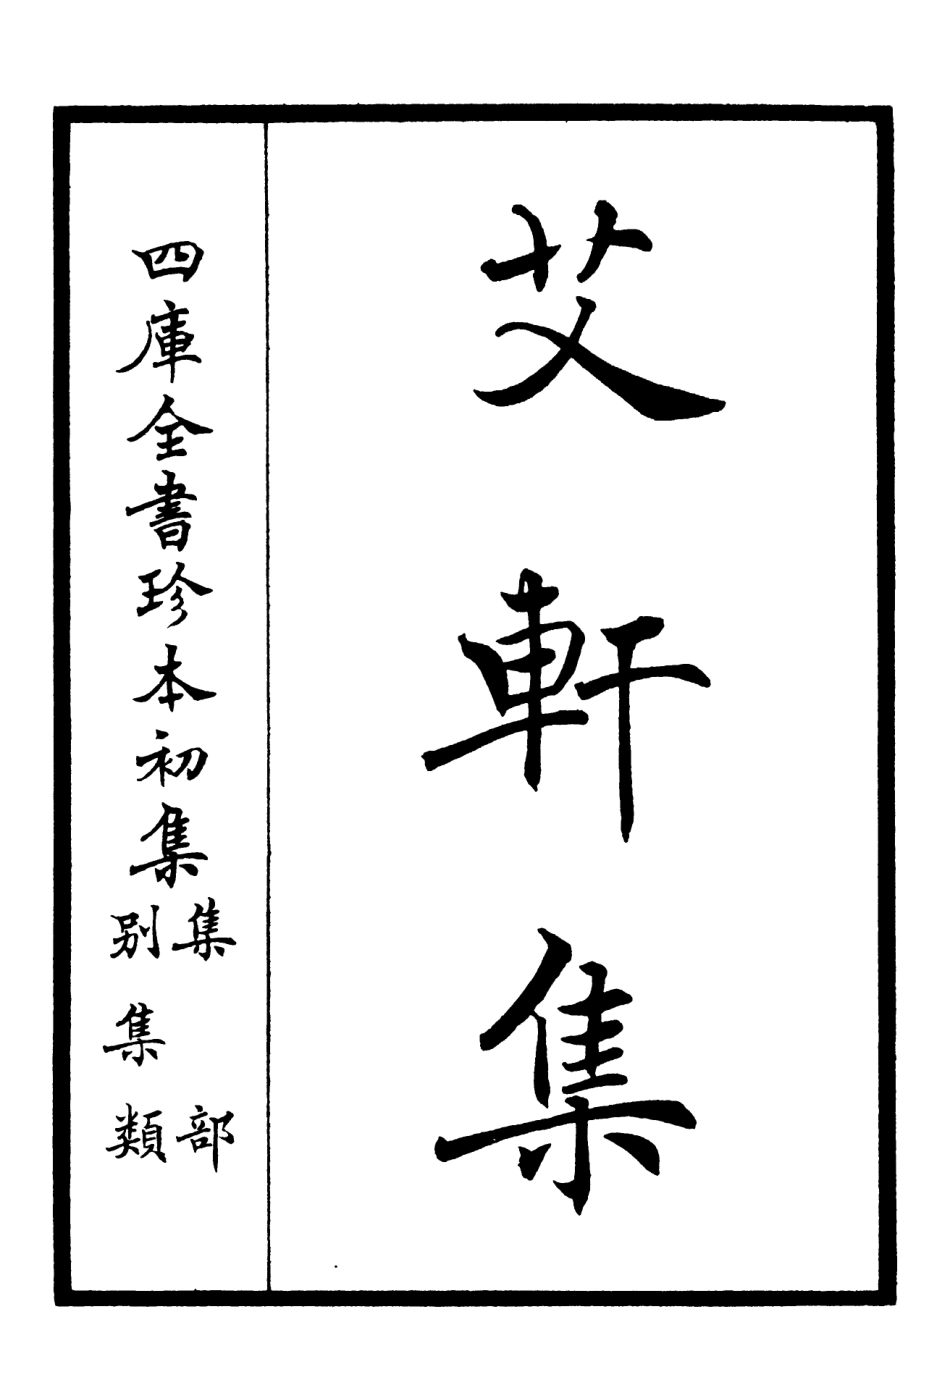 艾軒集
四庫全書珍本初集
集部
別集類